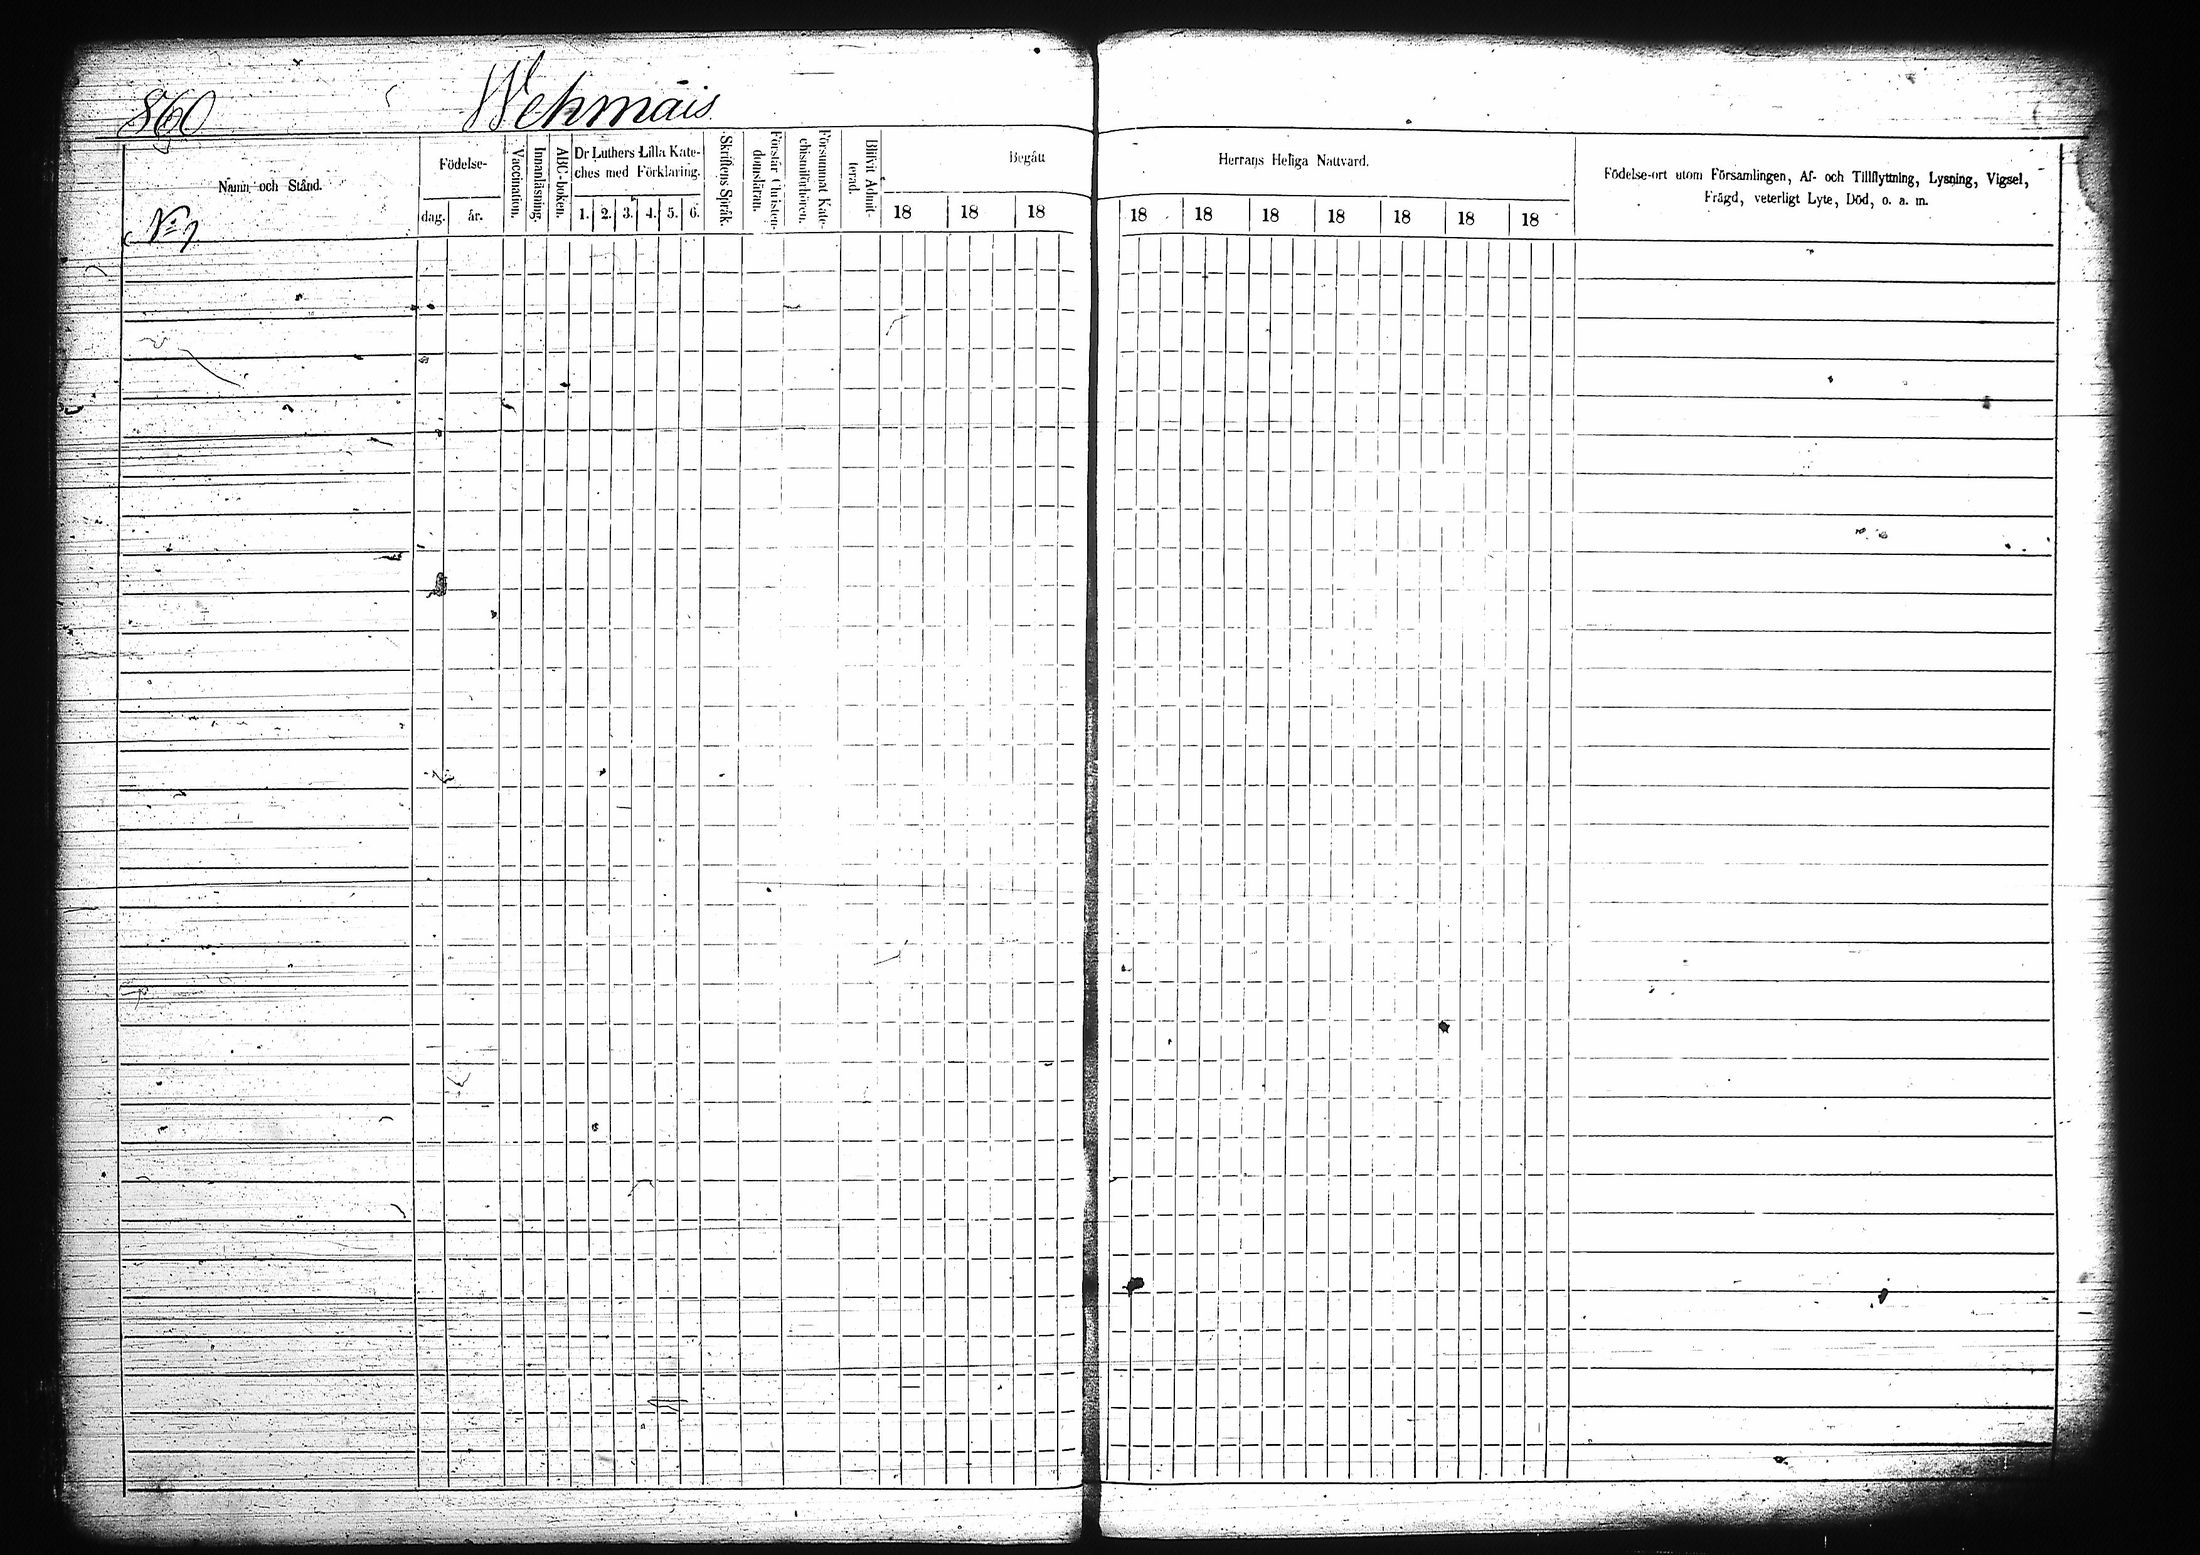 860
Wehmais
Namn och Stånd.
Födelse-
dag.
år.
Vaccination.
Innanläsning.
ABC-boken.
Dr Luthers Lilla Kate-
ches med Förklaring.
1. 2. 3. 4. 5. 6.
Skriftens Språk.
Förstår Christen-
domsläran.
Försummat Kate-
chismiförhören.
Blifvit Admit-
terad.
Begått
18 18 18
Herrans Heliga Nattvard.
18 18 18 18 18 18 18
Födelse-ort utom Församlingen, Af- och Tillflyttning, Lysning, Vigsel,
Frägd, veterligt Lyte, Död, o. a. m.